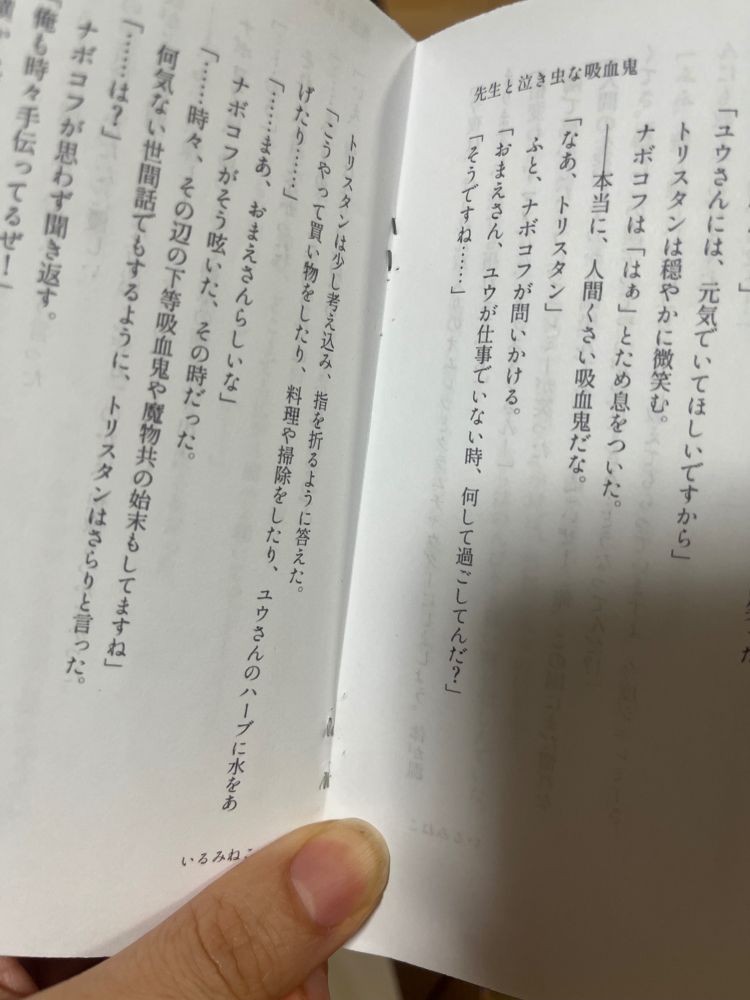 先生と泣き虫な吸血鬼
」
「ユウさんには、元気でいてほしいですから」
トリスタンは穏やかに微笑む。
ナボコフは「はぁ」とため息をついた。
――本当に、人間くさい吸血鬼だな。
「なあ、トリスタン」
ふと、ナボコフが問いかける。
「おまえさん、ユウが仕事でいない時、何して過ごしてんだ?」
「そうですね……」
トリスタンは少し考え込み、指を折るように答えた。
「こうやって買い物をしたり、料理や掃除をしたり、ユウさんのハーブに水をあ
げたり……」
「……まあ、おまえさんらしいな」
ナボコフがそう呟いた、その時だった。
「……時々、その辺の下等吸血鬼や魔物共の始末もしてますね」
何気ない世間話でもするように、トリスタンはさらりと言った。
「……は?」
ナボコフが思わず聞き返す。
「俺も時々手伝ってるぜ!」
いるみねこ